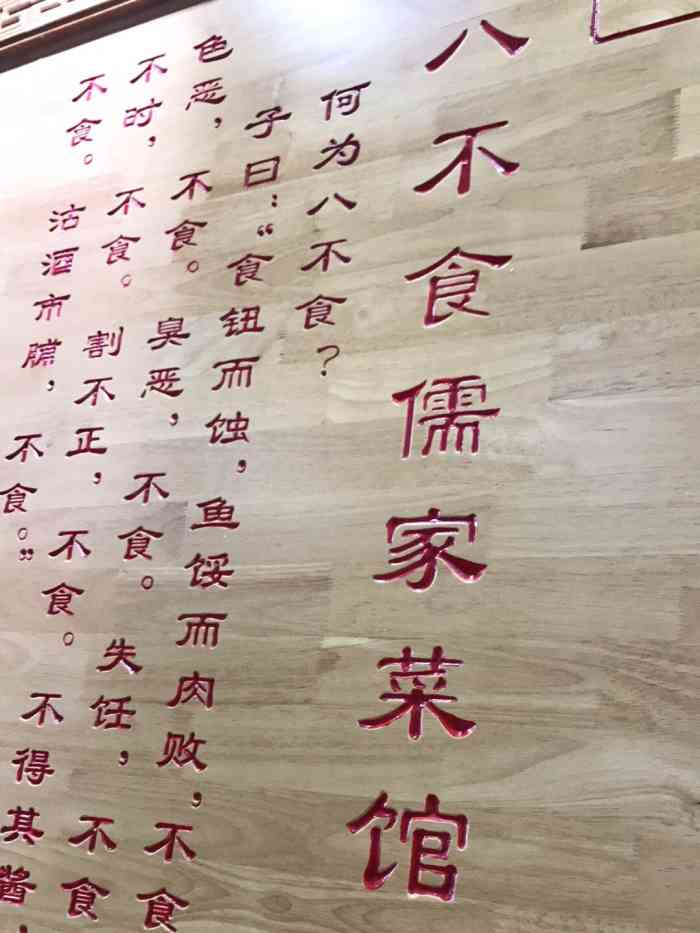 八不食儒家菜馆
何为八不食？
子曰：“食钮而蚀，鱼馁而肉败，不食
色恶，不食。臭恶，不食。失饪，不食
不时，不食。割不正，不食。不得其酱，
不食。沽酒市脯，不食。”